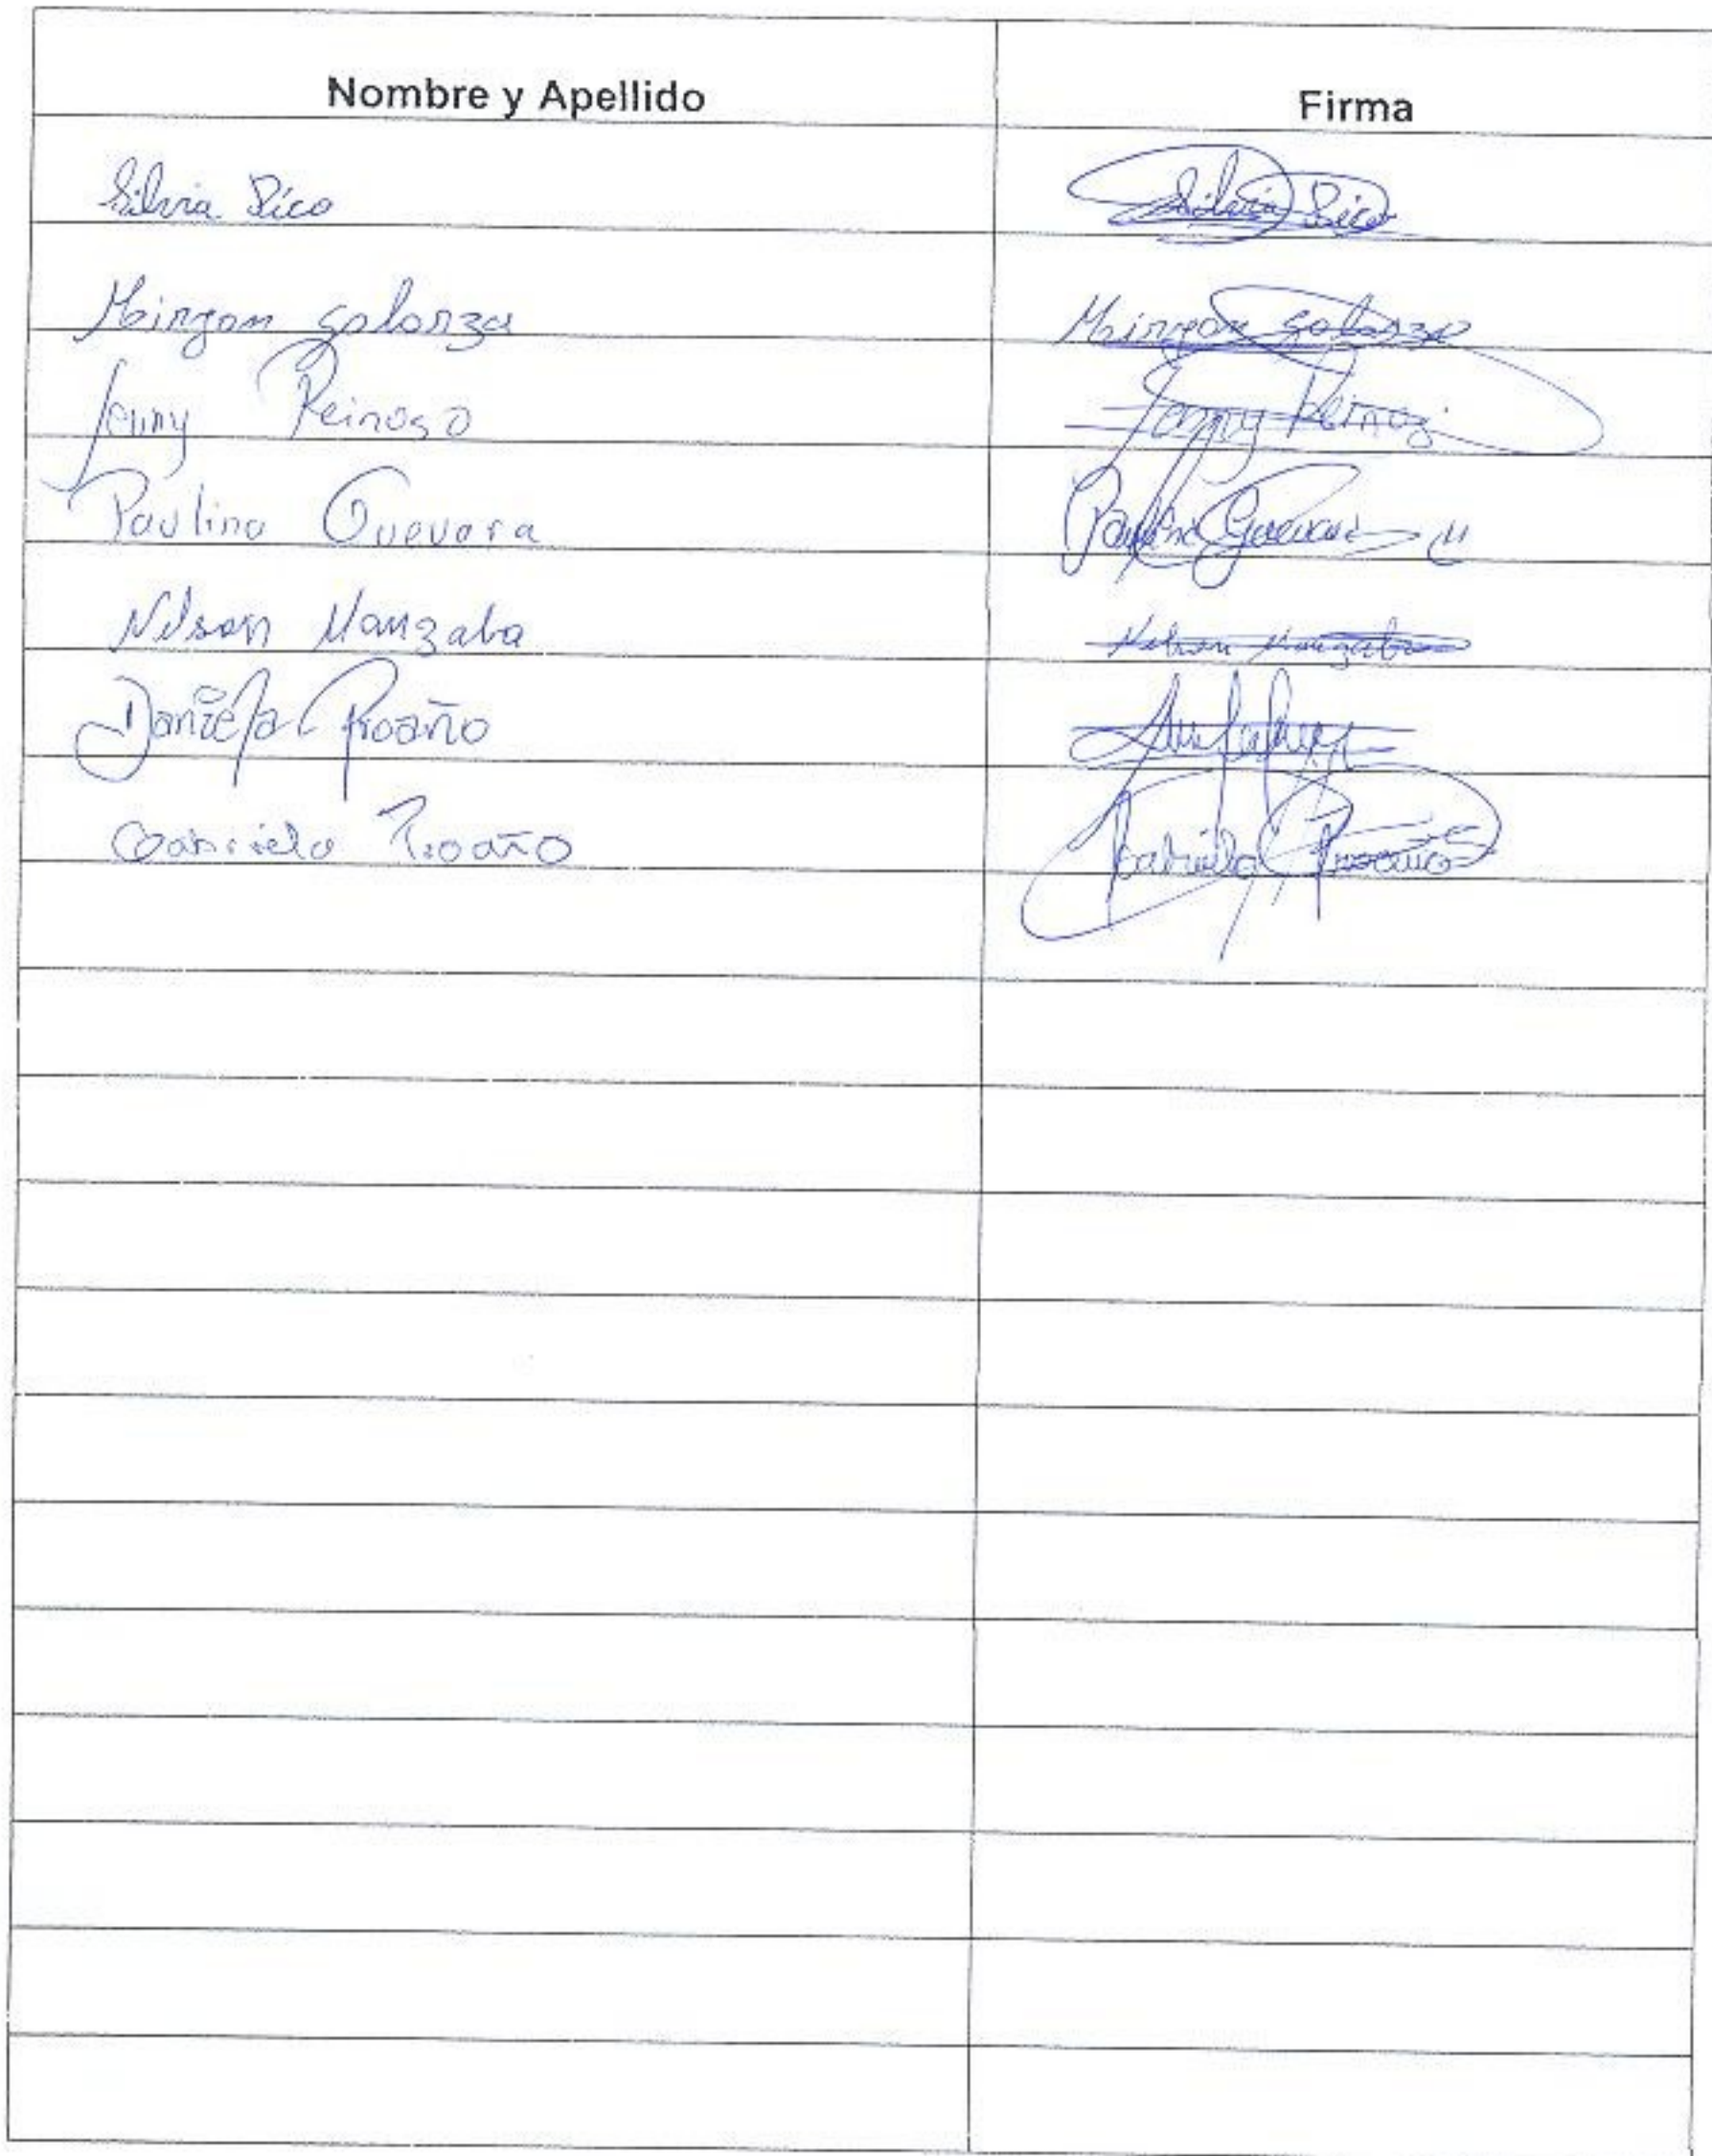 Nombre y Apellido Firma
Silvia Pico Silvia Pico
Miryam Solorza Miryam Solorza
Jenny Reinoso Jenny Reinos
Paulina Guevara Paulina Guevara
Nelson Manzaba Nelson Manzaba
Daniela Proaño
Gabriela Proaño Gabriela Proaño